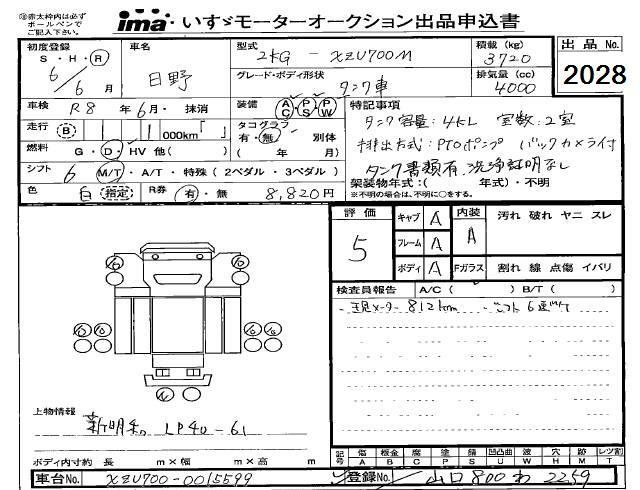 ◎赤太枠内は必ず
ボールペンで
ご記入下さい。
ima いすゞモーターオークション出品申込書
初度登録 車名 型式 2KG - XZU700M 積載 (kg) 3720 出品 No.
S・H・R 6/6月 日野 グレード・ボディ形状 タンク車 排気量 (cc) 4000 2028
車検 R8 年 6月・ 抹消 装備 AC・PS・PW 特記事項
走行 B 000km「 」 タコグラフ 有・無 別体 タンク容量:4kL 室数:2室
燃料 G・D・HV 他( ) ( 年 月) 排出方式:PTOポンプ バックカメラ付
シフト 6 M/T・A/T・特殊 ( 2ペダル ・ 3ペダル ) タンク書類有 洗浄証明なし
色 白 指定 R券 有・無 8,820円 架装物年式:( 年式)・不明
※不明の場合は、不明に○をする。
評価 キャブ A 内装 汚れ 破れ ヤニ スレ
5 フレーム A A
ボディ A Fガラス 割れ 線 点傷 イバリ
検査員報告 A/C ( ) B/T ( )
現メーター 812km シフト6速MT
上物情報
新明和 LP40-61
ボディ内寸約 長 m×幅 m×高 m
記号 傷A 板金B 腐C 塗P 錆S 凹凸曲U 波W 穴H 跡M レツ割T
車台No. XZU700-0015599 登録No. 山口 800 わ 2259